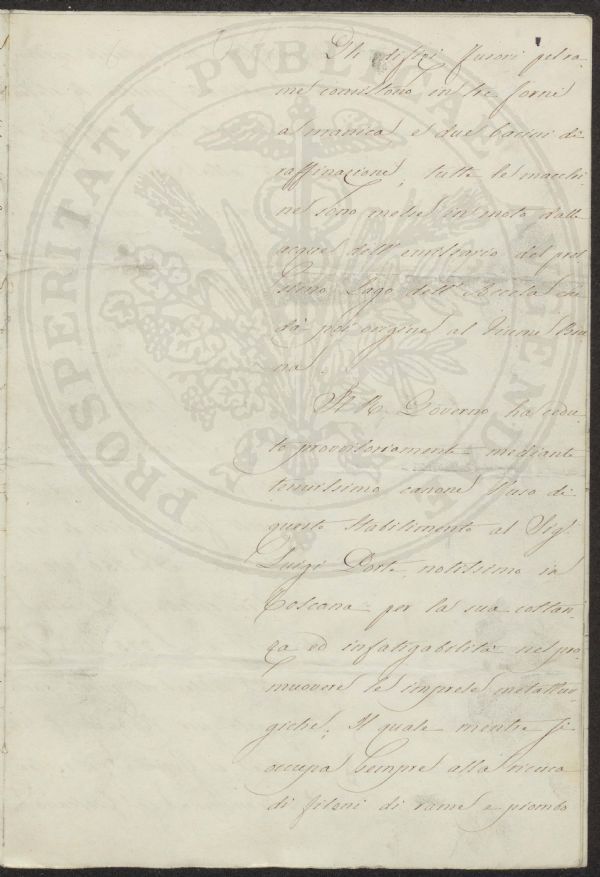 PROSPERITATI PVBLICAE AVGENDAE
Gli edifizi fusori pel ra-
me consistono in tre forni
a manica e due bacini di
raffinazione, tutte le macchi-
ne sono messe in moto dalle
acque dell'emissario del pros
simo Lago dell'Accesa che
dà poi origine al fiume Bru
na.
Il R. Governo ha cedu-
to provvisoriamente mediante
tenuissimo canone l'uso di
questo stabilimento al Sigr.
Luigi Porte, notissimo in
Toscana per la sua costan-
za ed infatigabilità nel pro
muovere le imprese metallur-
giche. Il quale mentre si
occupa sempre alla ricerca
di filoni di rame e piombo